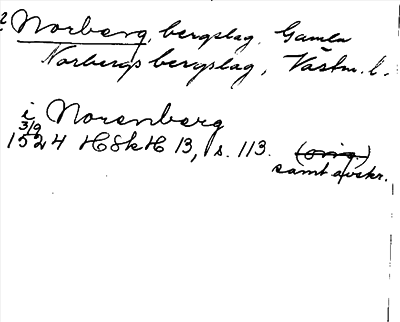 2 Norberg, bergslag. Gamla
Norbergs bergslag, Västm. l.
i Norenberg
3/9
1524 HSkH 13, s. 113. (orig.)
samt avskr.